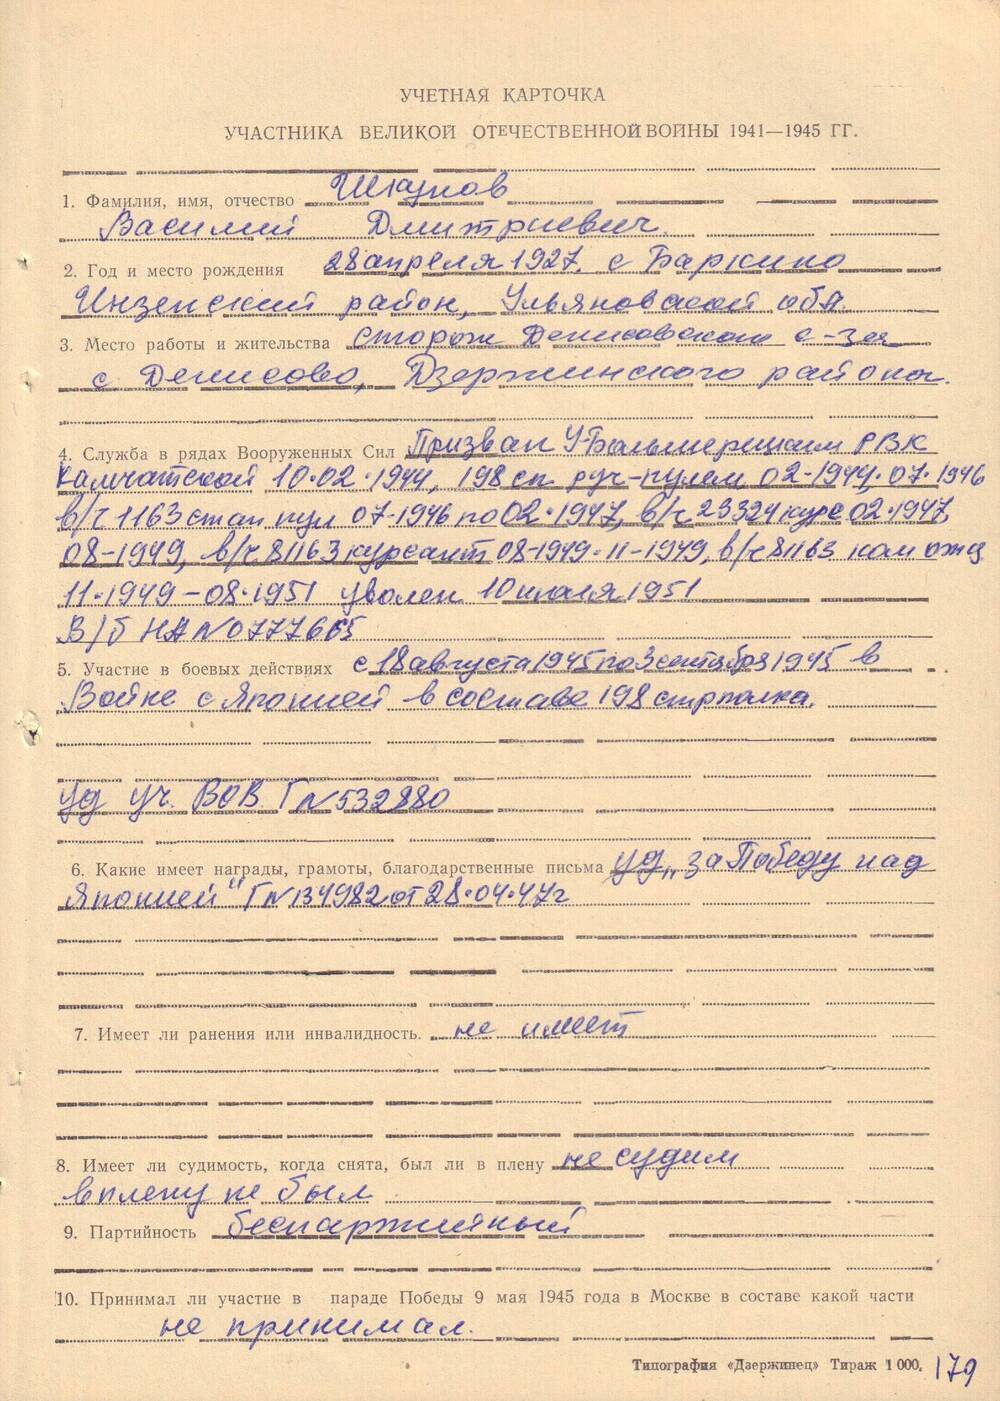 УЧЕТНАЯ КАРТОЧКА
УЧАСТНИКА ВЕЛИКОЙ ОТЕЧЕСТВЕННОЙ ВОЙНЫ 1941—1945 ГГ.
1. Фамилия, имя, отчество Шкунов
Василий Дмитриевич.
2. Год и место рождения 28 апреля 1927, с Баркино
Инзенский район, Ульяновской обл.
3. Место работы и жительства Сторож Денисовского с-за
с Денисово, Дзержинского района.
4. Служба в рядах Вооруженных Сил Призван У-Большерецким РВК
Камчатской 10.02.1944, 198 сп руч-пулем 02-1944. 07.1946
в/ч 1163 стан пул 07-1946 по 02.1947, в/ч 23324 курс 02.1947,
08-1949, в/ч 81163 курсант 08-1949-11-1949, в/ч 81163 ком отд
11.1949-08.1951 уволен 10 июля 1951
В/б НА N0777665
5. Участие в боевых действиях с 18 августа 1945 по 3 сентября 1945 в
Войне с Японией в составе 198 стр полка.
уд уч. ВОВ Г N 532880
6. Какие имеет награды, грамоты, благодарственные письма уд „за Победу над
Японией“ Г N 134982 от 28.04.47г
7. Имеет ли ранения или инвалидность. не имеет
8. Имеет ли судимость, когда снята, был ли в плену не судим
в плену не был
9. Партийность беспартийный
10. Принимал ли участие в параде Победы 9 мая 1945 года в Москве в составе какой части
не принимал.
Типография «Дзержинец» Тираж 1 000. 179